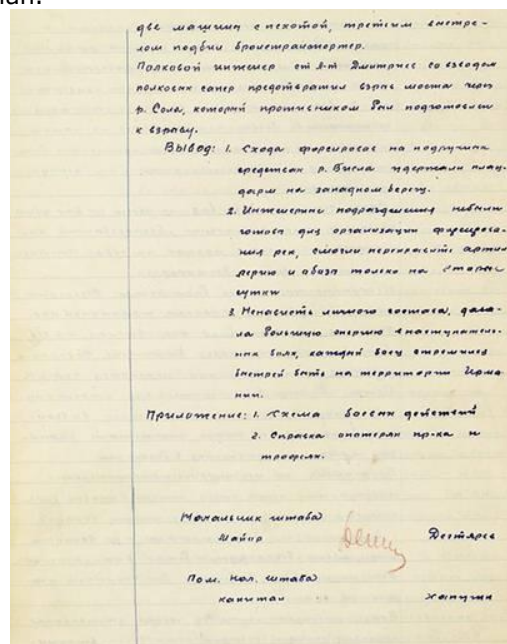 лап.
две машины с пехотой, третьим выстре-
лом подбил бронетранспортер.
Полковой инженер ст л-т Дмитриев со взводом
полковых сапер предотвратил взрыв моста через
р. Сола, который противником был подготовлен
к взрыву.
Вывод: 1. Схода форсировав на подручных
средствах р. Висла удержали плац-
дарм на западном берегу.
2. Инженерные подразделения небыли
готовы для организации форсирова-
ния рек, смогли переправить артил-
лерию и обоз только на вторые
сутки
3. Ненависть личного состава, дава-
ла большую энергию в наступатель-
ных боях, каждый боец стремился
быстрей быть на территории Герма-
нии.
Приложение: 1. Схема боевых действий
2. Справка о потерях пр-ка и
трофеях.
Начальник штаба
Майор Дегтярев
Пом. Нач. штаба
капитан